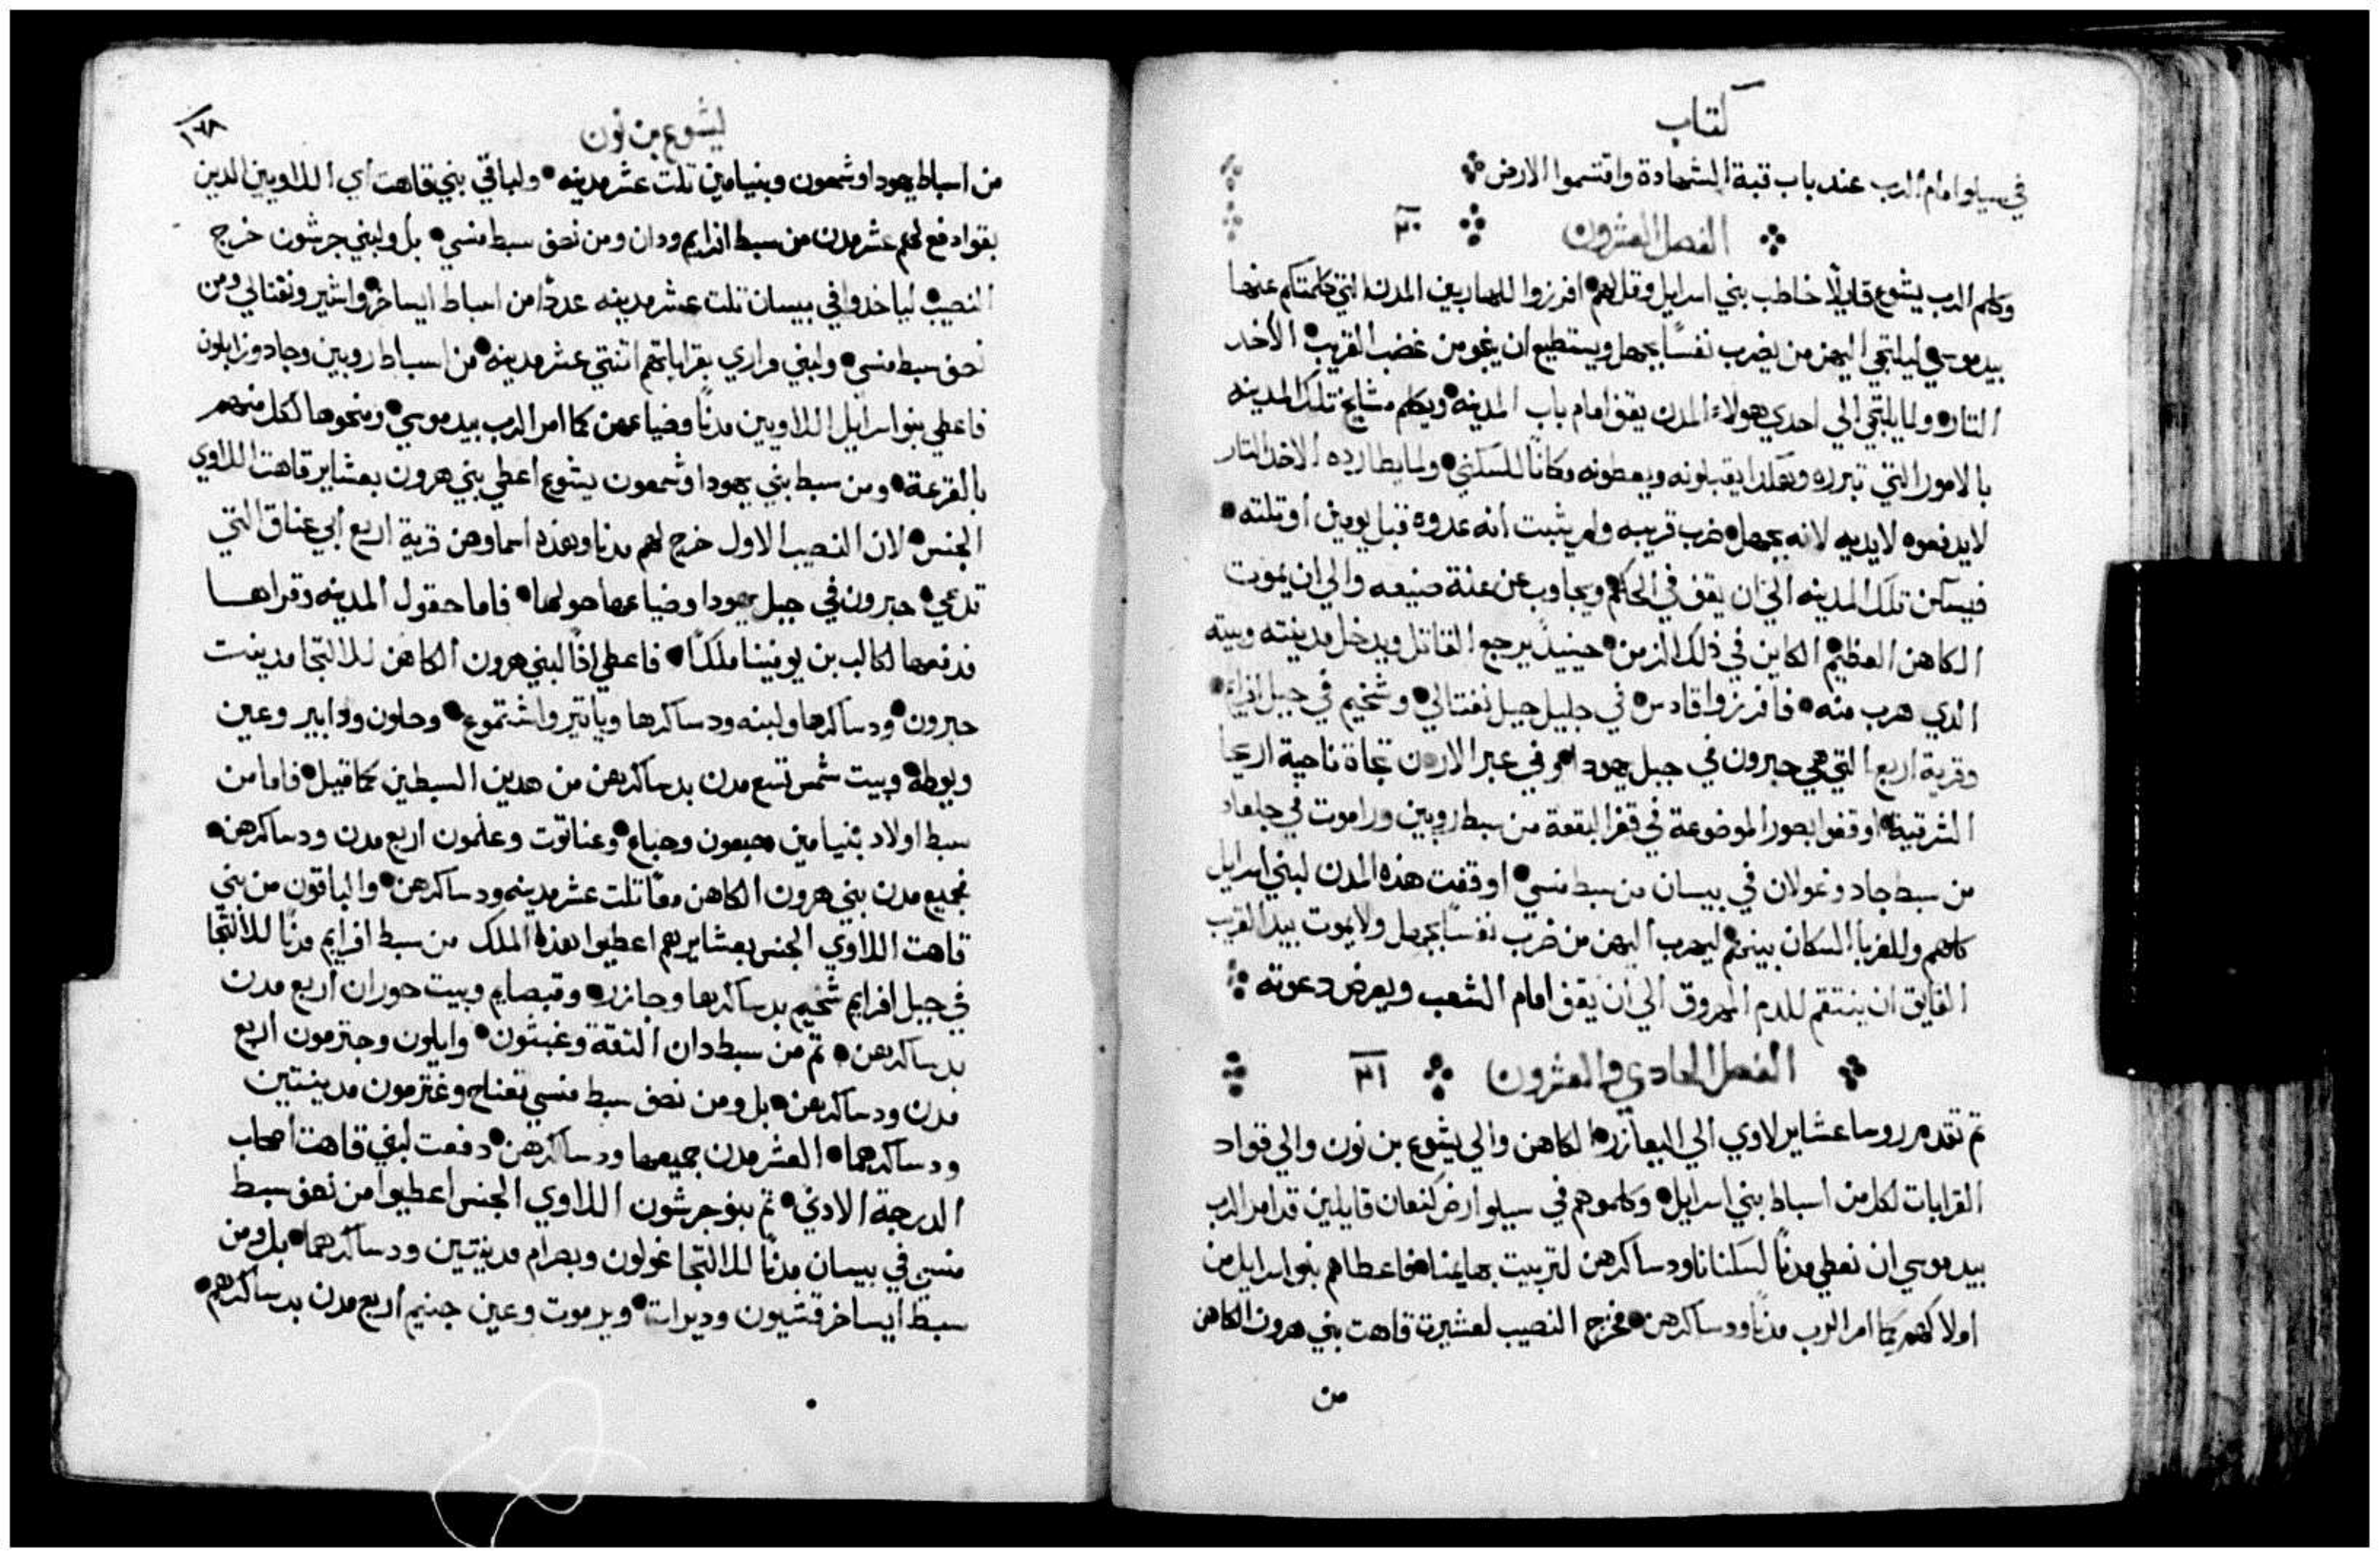 كتاب
في سيلوا امام الرب عند باب قبة الشهادة واقتسموا الارض
الفصل العشرون ٢٠
وكلم الرب يشوع قايلًا خاطب بني اسرايل وقل لهم افرزوا للهاربين المدن التي كلمتكم عنها
بيد موسي ليلتجي اليهن من يضرب نفسًا بجهل ويستطيع ان ينجو من غضب القريب الاخد
التار ولما يلتجي الي احدي هولاء المدن يقف امام باب المدينه ويكلم مشايخ تلك المدينه
بالامور التي تبرره وهكدا يقبلونه ويعطونه مكانًا للسكني ولما يطارده الاخد التار
لا يدفعوه لايديه لانه بجهل ضرب قريبه ولم يثبت انه عدوه قبل يومين أو تلته
فيسكن تلك المدينه الي ان يقف في الحكم ويجاوب عن علة صنيعه والي ان يموت
الكاهن العظيم الكاين في ذلك الزمن حينيدٍ يرجع القاتل ويدخل مدينته وبيته
الدي هرب منه فافرزوا قادس في جليل جبل نفتالي وشخيم في جبل افرايم
وقرية اربع التي هي حبرون في جبل يهودا وفي عبر الاردن تجاة ناحية اريحا
الشرقية اوقفوا بصور الموضوعة في قفر البقعة من سبط روبين وراموت في جلعاد
من سبط جاد وغولان في بيسان من سبط منسي اوقفت هذه المدن لبني اسرايل
كلهم وللغربا السكان بينهم ليهرب اليهن من ضرب نفسًا بجهل ولا يموت بيد القريب
الفايق ان ينتقم للدم المهروق الي ان يقف امام الشعب ويعرض دعوته
الفصل الحادي والعشرون ٢١
تم تقدم روسا عشاير لاوي الي اليعازره الكاهن والي يشوع بن نون والي قواد
القرابات لكل من اسباط بني اسرايل وكلموهم في سيلو ارض كنعان قايلين قد امر الرب
بيد موسي ان نعطي مدنًا لسكنانا ودساكرهن لتربيت بهايمنا فاعطاهم بنو اسرايل من
املاكهم كما امر الرب مدنًا ودساكرهن فخرج النصيب لعشيرة قاهت بني هرون الكاهن
من
يشوع بن نون
١٦٨
من اسباط يهودا وشمعون وبنيامين تلت عشر مدينه ولباقي بني قاهت اي اللاويين الدين
بقوا دفع لهم عشر مدن من سبط افرايم ودان ومن نصف سبط منسي بل ولبني جرشون خرج
النصيب لياخدوا في بيسان تلت عشر مدينه عددًا من اسباط ايساخر واشير ونفتالي ومن
نصف سبط منسي ولبني مراري بقراباتهم اتنتي عشر مدينه من اسباط روبين وجاد وزابلون
فاعطي بنو اسرايل اللاويين مدنًا وضياعهن كما امر الرب بيد موسي ومنحوها لكل منهم
بالقرعة ومن سبط بني يهودا وشمعون يشوع اعطي بني هرون بعشاير قاهت اللاوي
الجنس لان النصيب الاول خرج لهم مدنا وهذه اسماوهن قرية اربع ابي عناق التي
تدعي حبرون في جبل يهودا وضياعها حولها فاما حقول المدينه وقراها
فدفعها لكالب بن يوفنا ملكًا فاعطي اذًا لبني هرون الكاهن للالتجا مدينت
حبرون ودساكرها ولبنه ودساكرها وياتير واشتموع وحلون ودابير وعين
ويوطة وبيت شمس تسع مدن بدساكرهن من هدين السبطين كما قيل فاما من
سبط اولاد بنيامين جبعون وجباع وعناتوت وعلمون اربع مدن ودساكرهن
فجميع مدن بني هرون الكاهن معًا تلت عشر مدينه ودساكرهن والباقون من بني
قاهت اللاوي الجنس بعشايرهم اعطيوا هذه الملك من سبط افرايم مدنًا للالتجا
في جبل افرايم شخيم بدساكرها وجازره وقبصايم وبيت حوران اربع مدن
بدساكرهن تم من سبط دان التقة وغبتون وايلون وجترمون اربع
مدن ودساكرهن بل ومن نصف سبط منسي تعناح وغترمون مدينتين
ودساكرهما العشر مدن جميعها ودساكرهن دفعت لبني قاهت اصحاب
الدرجة الادني تم بنو جرشون اللاوي الجنس اعطيوا من نصف سبط
منسي في بيسان مدنًا للالتجا غولون وبصرام مدينتين ودساكرهما بل ومن
سبط ايساخر قشيون وديرات ويرموت وعين جنيم اربع مدن بدساكرهم